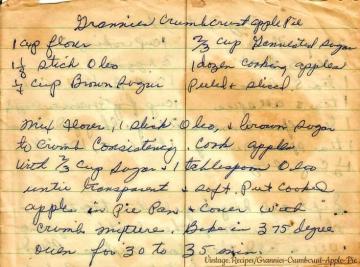 Grannies Crumbcrust apple Pie
1 cup flour
1 1/8 stick Oleo
1/4 cup Brown Sugar
2/3 cup Granulated Sugar
1 dozen cooking apples
Peeled & sliced
Mix flour, 1 stick Oleo, & brown sugar
to Crumb Consistency. Cook apples
with 2/3 cup sugar & 1 tablespoon Oleo
until transparent & soft. Put cooked
apples in Pie Pan & cover with
crumb mixture. Bake in 375 degree
oven for 30 to 35 min.
Vintage.Recipes/Grannies-Crumbcrust-Apple-Pie